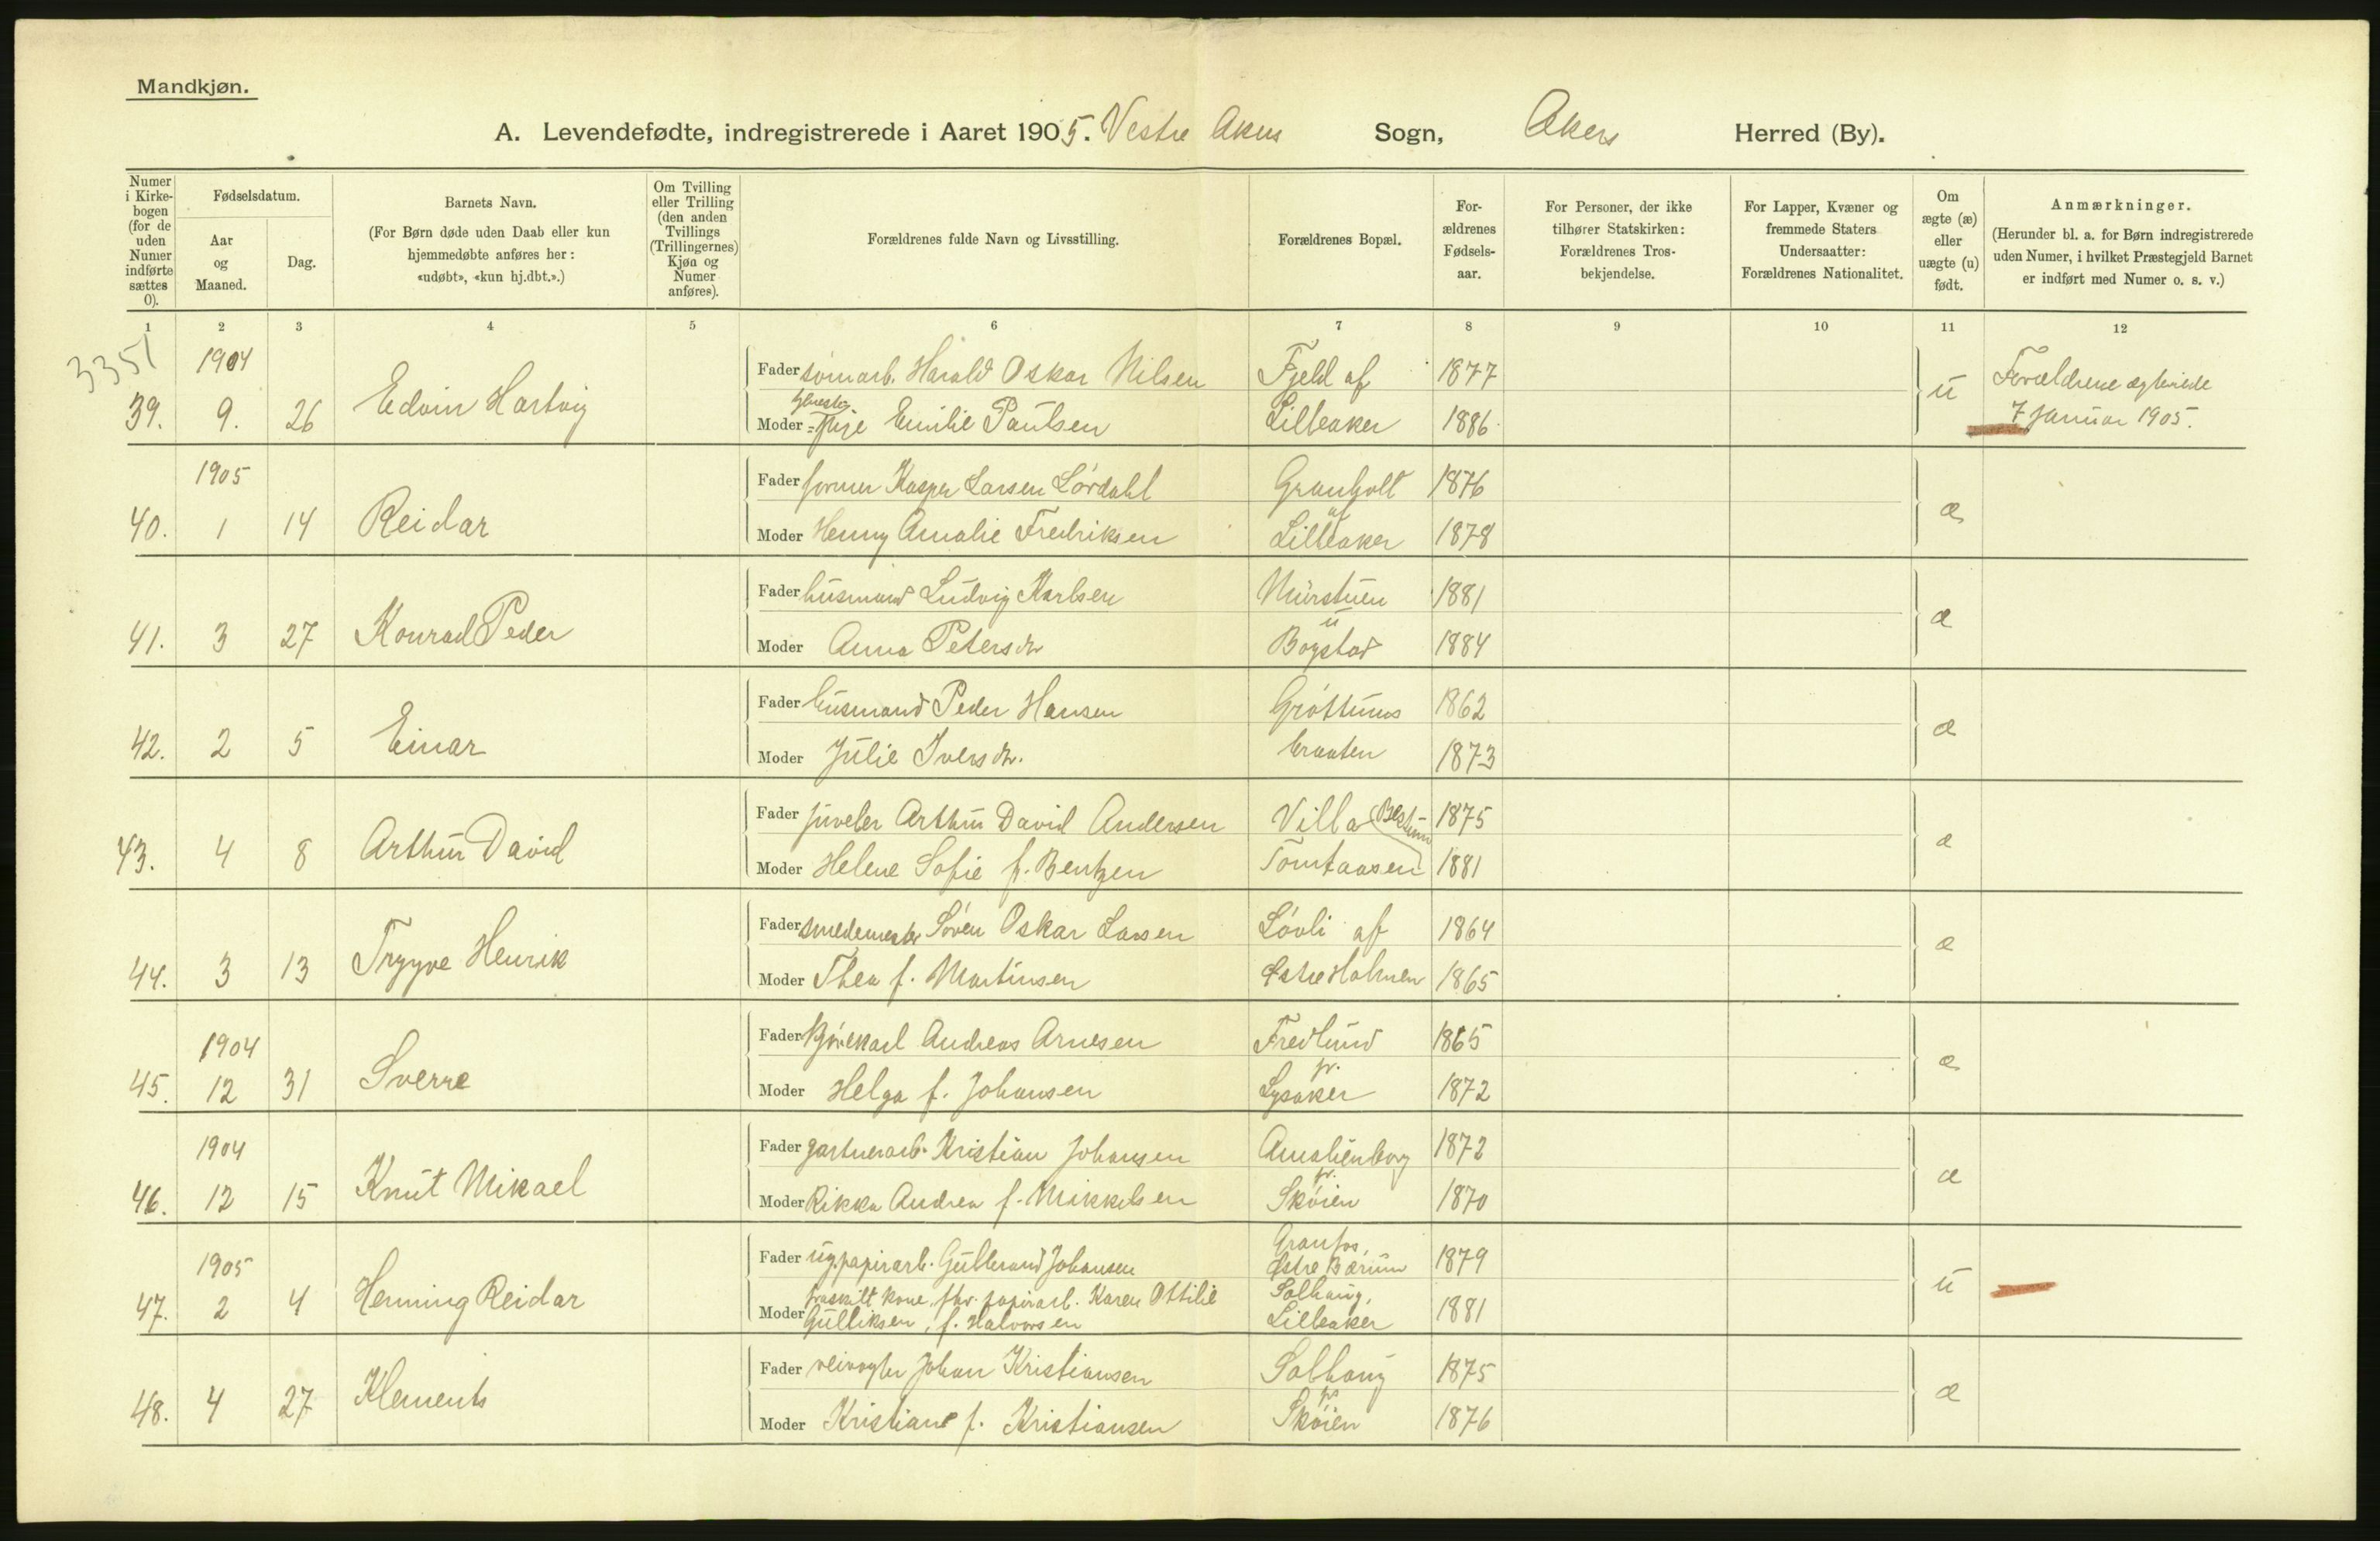 Mandkjøn.
A. Levendefødte, indregistrerede i Aaret 1905. Vestre Akers Sogn, Akers Herred (By).
Numer i Kirkebogen (for de uden Numer indførte sættes 0).
Fødselsdatum.
Aar og Maaned.
Dag.
Barnets Navn.
(For Børn døde uden Daab eller kun hjemmedøbte anføres her: «udøbt», «kun hj.dbt.».)
Om Tvilling eller Trilling (den anden Tvillings (Trillingernes) Kjøn og Numer anføres).
Forældrenes fulde Navn og Livsstilling.
Forældrenes Bopæl.
Forældrenes Fødselsaar.
For Personer, der ikke tilhører Statskirken: Forældrenes Trosbekjendelse.
For Lapper, Kvæner og fremmede Staters Undersaatter: Forældrenes Nationalitet.
Om ægte (æ) eller uægte (u) født.
Anmærkninger.
(Herunder bl. a. for Børn indregistrerede uden Numer, i hvilket Præstegjeld Barnet er indført med Numer o. s. v.)
1 2 3 4 5 6 7 8 9 10 11 12
3351
1904 Fader sømarb. Harald Oskar Nilsen Fjeld af 1877
39. 9. 26 Edvin Hartvig Moder Emilie Paulsen Lilleaker 1886 u Forældrene ægteviede
7 Januar 1905.
1905 Fader former Kasper Larsen Lørdahl Granholt 1876
af
40. 1 14 Reidar Moder Henny Amalie Fredriksen Lilleaker 1878 æ
Fader husmand Ludvig Karlsen Murstuen 1881
u
41. 3 27 Konrad Peder Moder Anna Petersdtr Bogstad 1884 æ
Fader husmand Peder Hansen Grøttums 1862
42. 2 5 Einar Moder Julie Iversdtr. braaten 1873 æ
Fader juveler Arthur David Andersen Villa Bestum 1875
43. 4 8 Arthur David Moder Helene Sofie f. Bentzen Tomtaasen 1881 æ
Fader smedemester Søren Oskar Larsen Løvli af 1864
44. 3 13 Trygve Henrik Moder Thea f. Martinsen Østre Holmen 1865 æ
1904 Fader Kjørekarl Andreas Arnesen Fredlund 1865
pr.
45. 12 31 Sverre Moder Helga f. Johansen Lysaker 1872 æ
1904 Fader gartnerarb. Kristian Johansen Amalienborg 1872
pr.
46. 12 15 Knut Mikael Moder Rikka Andrea f. Mikkelsen Skøien 1870 æ
1905 Fader ug. papirarb. Gulbrand Johansen Granfos, Østre Bærum 1879
47. 2 4 Henning Reidar Moder fraskilt kone, fhv. papirarb. Karen Ottilie Solhaug,
Gulliksen, f. Halvorsen Lilleaker 1881 u
Fader veivogter Johan Kristiansen Solhaug 1875
pr
48. 4 27 Klements Moder Kristiane f. Kristiansen Skøien 1876 æ